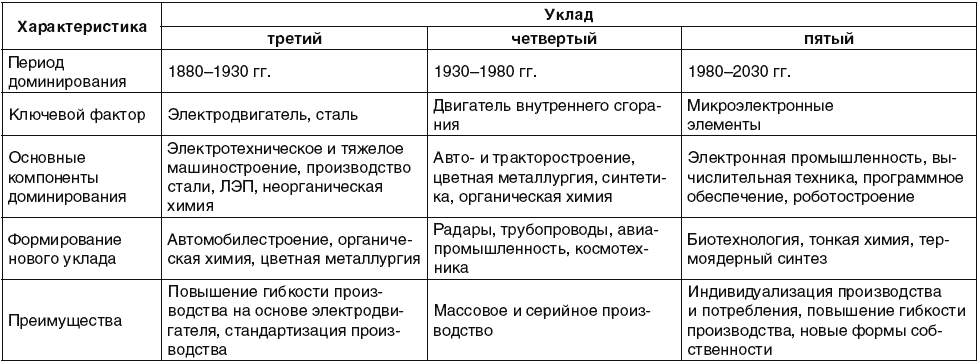 Характеристика
Уклад
третий
четвертый
пятый
Период
доминирования
1880–1930 гг.
1930–1980 гг.
1980–2030 гг.
Ключевой фактор
Электродвигатель, сталь
Двигатель внутреннего сгора-
ния
Микроэлектронные
элементы
Основные
компоненты
доминирования
Электротехническое и тяжелое
машиностроение, производство
стали, ЛЭП, неорганическая
химия
Авто- и тракторостроение,
цветная металлургия, синтети-
ка, органическая химия
Электронная промышленность, вы-
числительная техника, программное
обеспечение, роботостроение
Формирование
нового уклада
Автомобилестроение, органиче-
ская химия, цветная металлургия
Радары, трубопроводы, авиа-
промышленность, космотех-
ника
Биотехнология, тонкая химия, тер-
моядерный синтез
Преимущества
Повышение гибкости произ-
водства на основе электродви-
гателя, стандартизация произ-
водства
Массовое и серийное произ-
водство
Индивидуализация производства
и потребления, повышение гибкости
производства, новые формы соб-
ственности